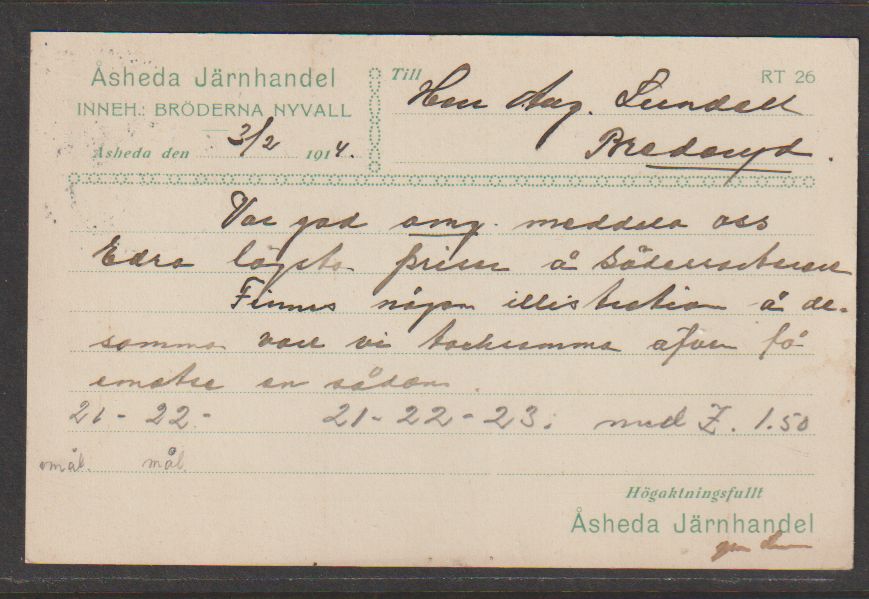 Åsheda Järnhandel
INNEH.: BRÖDERNA NYVALL
Åsheda den 3/2 1914.
Till
RT 26
Herr Aug. Lundell
Bredaryd.
Var god omg. meddela oss
Edra lägsta priser å
Finnes någon illistration å de-
samma vore vi tacksamma äfven få
emotse en sådan.
21 - 22 - 21 - 22 - 23. med Z. 1.50
omål. mål.
Högaktningsfullt
Åsheda Järnhandel